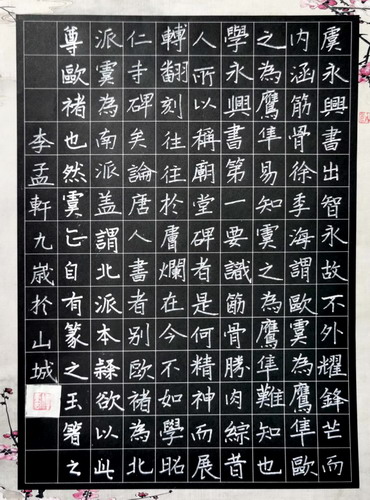 虞永興書出智永故不外耀鋒芒而
内涵筋骨徐季海謂歐虞為鷹隼歐
之為鷹隼易知虞之為鷹隼難知也
學永興書第一要識筋骨勝肉綜昔
人所以稱廟堂碑者是何精神而展
轉翻刻往往於膚爛在今不如學昭
仁寺碑矣論唐人書者别欧褚為北
派虞為南派盖謂北派本隸欲以此
尊歐褚也然虞正自有篆之玉箸之
李孟軒九歲於山城